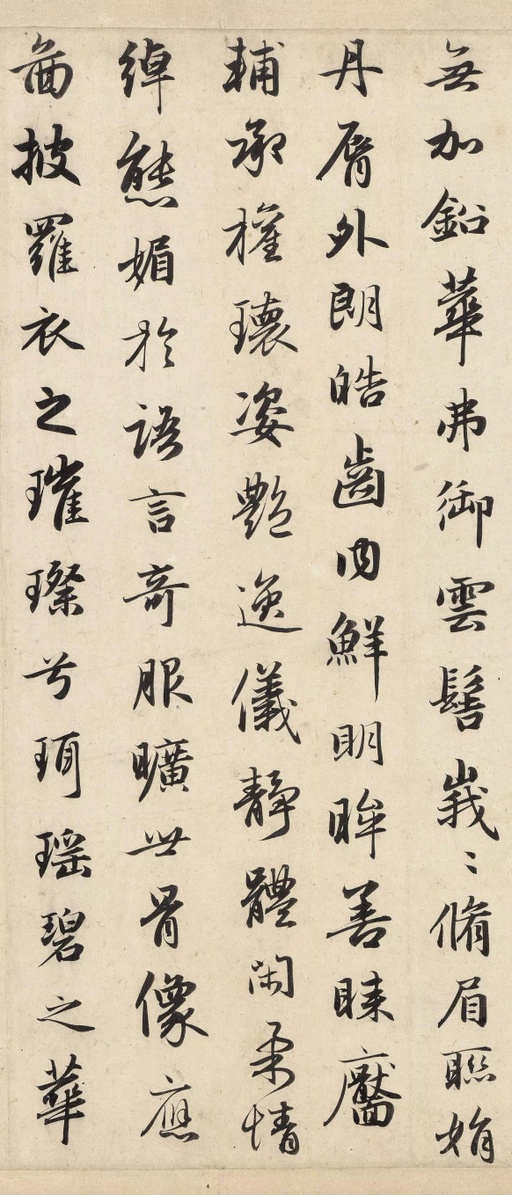 無加鉛華弗御雲髻峩〻脩眉聮娟
丹脣外朗皓齒内鮮明眸善睞靨
輔承權瓌姿艷逸儀静體閑柔情
綽態媚於語言竒服曠世骨像應
啚披羅衣之璀璨兮珥瑶碧之華